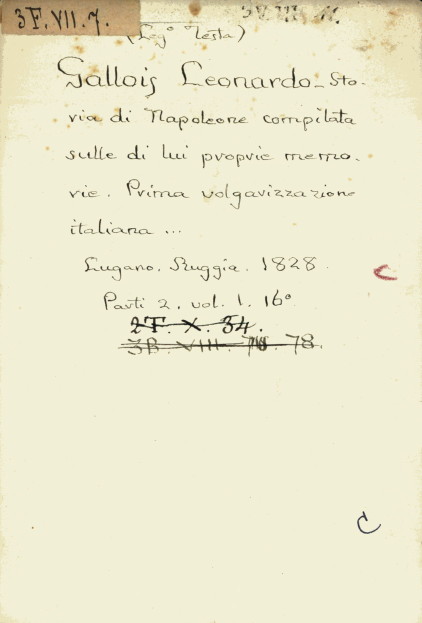 3 F. VII. 7.
(Leg.º Testa)
Gallois Leonardo - Sto-
ria di Napoleone compilata
sulle di lui proprie memo-
rie. Prima volgarizzazione
italiana ...
Lugano. Ruggia. 1828.
Parti 2. vol. 1. 16º
2T. X. 34.
3B. VIII. 78.
C